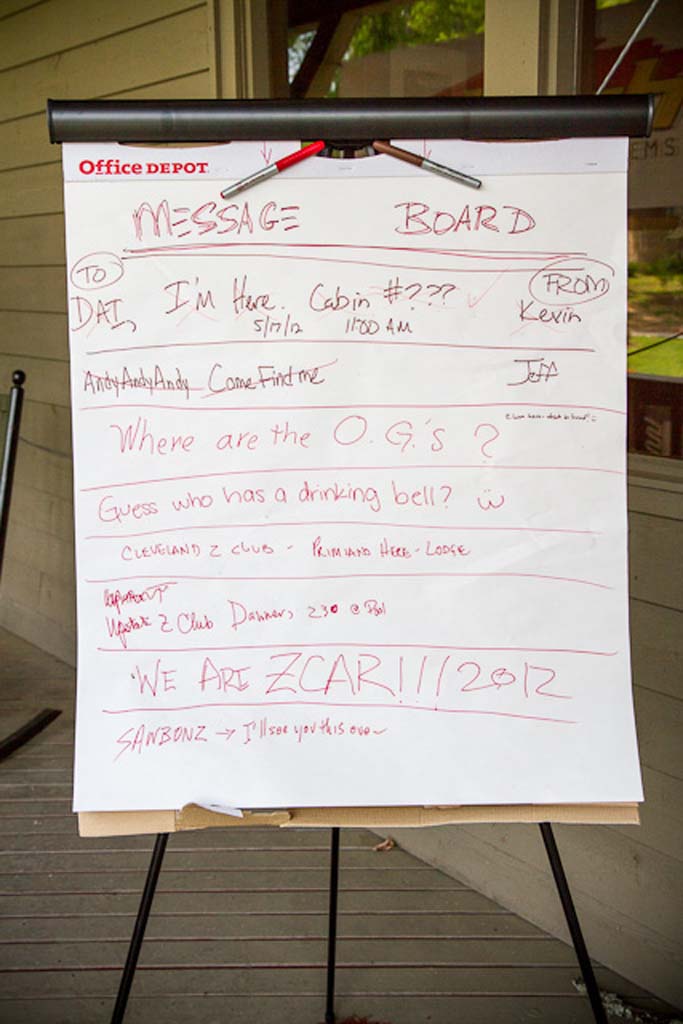 Office DEPOT
MESSAGE BOARD
TO
FROM
DAI, I'm Here. Cabin #??? Kevin
5/17/12 11:00 AM
AndyAndyAndy Come Find me Jeff
Where are the O.G.'s ?
Guess who has a drinking bell?
CLEVELAND Z CLUB - PRIMIANO HERE - LODGE
Upstate Z Club Danner, 230 @ Bol
WE ARE ZCAR!!! 2012
SAWBONZ → I'll see you this eve
EMS